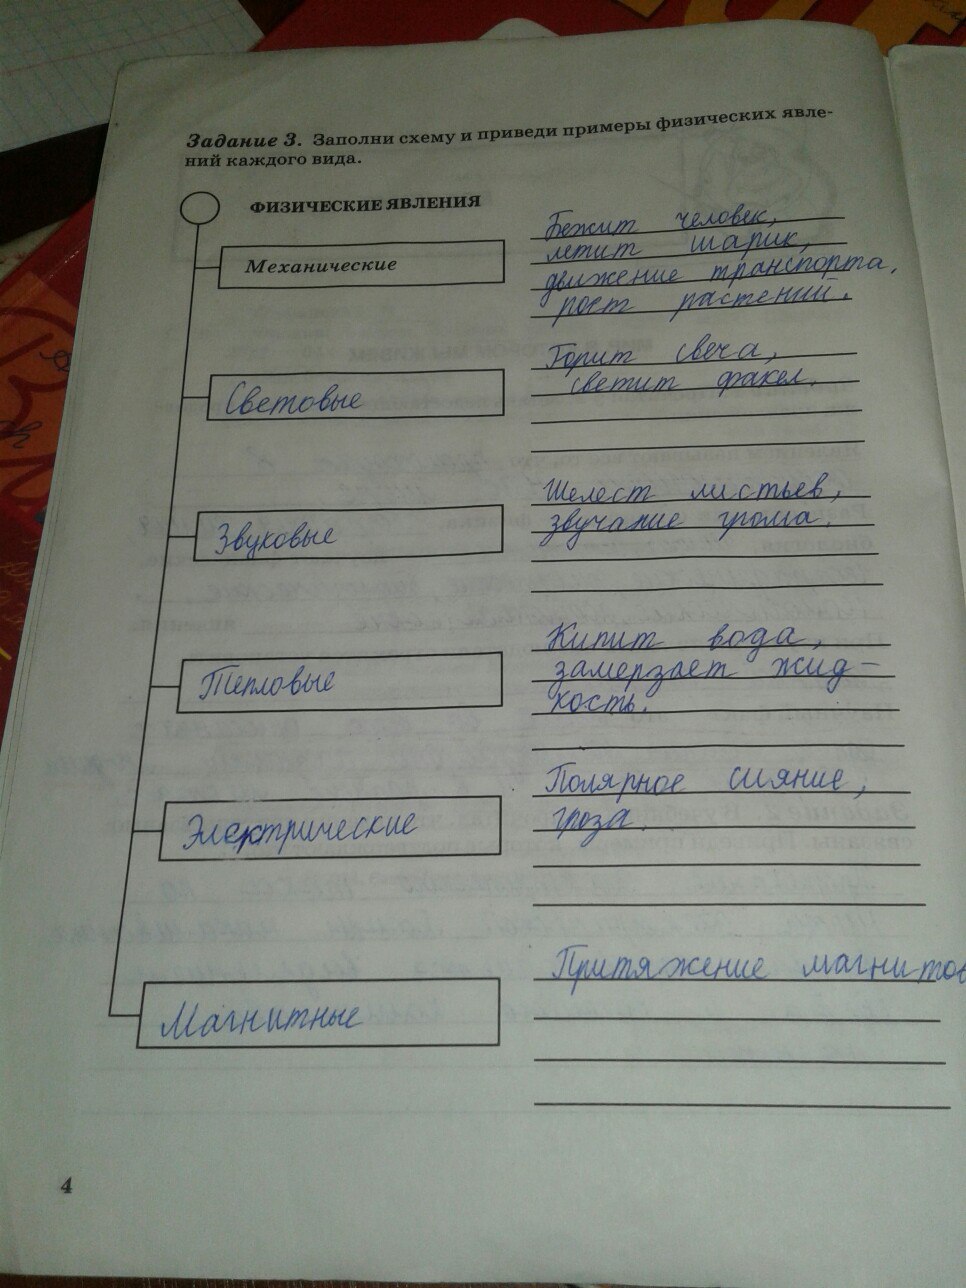 Задание 3. Заполни схему и приведи примеры физических явле-
ний каждого вида.
ФИЗИЧЕСКИЕ ЯВЛЕНИЯ
Механические
Бежит человек,
летит шарик,
движение транспорта,
рост растений.
Световые
Горит свеча,
светит факел.
Звуковые
Шелест листьев,
звучание грома.
Тепловые
Кипит вода,
замерзает жид-
кость.
Электрические
Полярное сияние,
гроза.
Магнитные
Притяжение магнитов
4